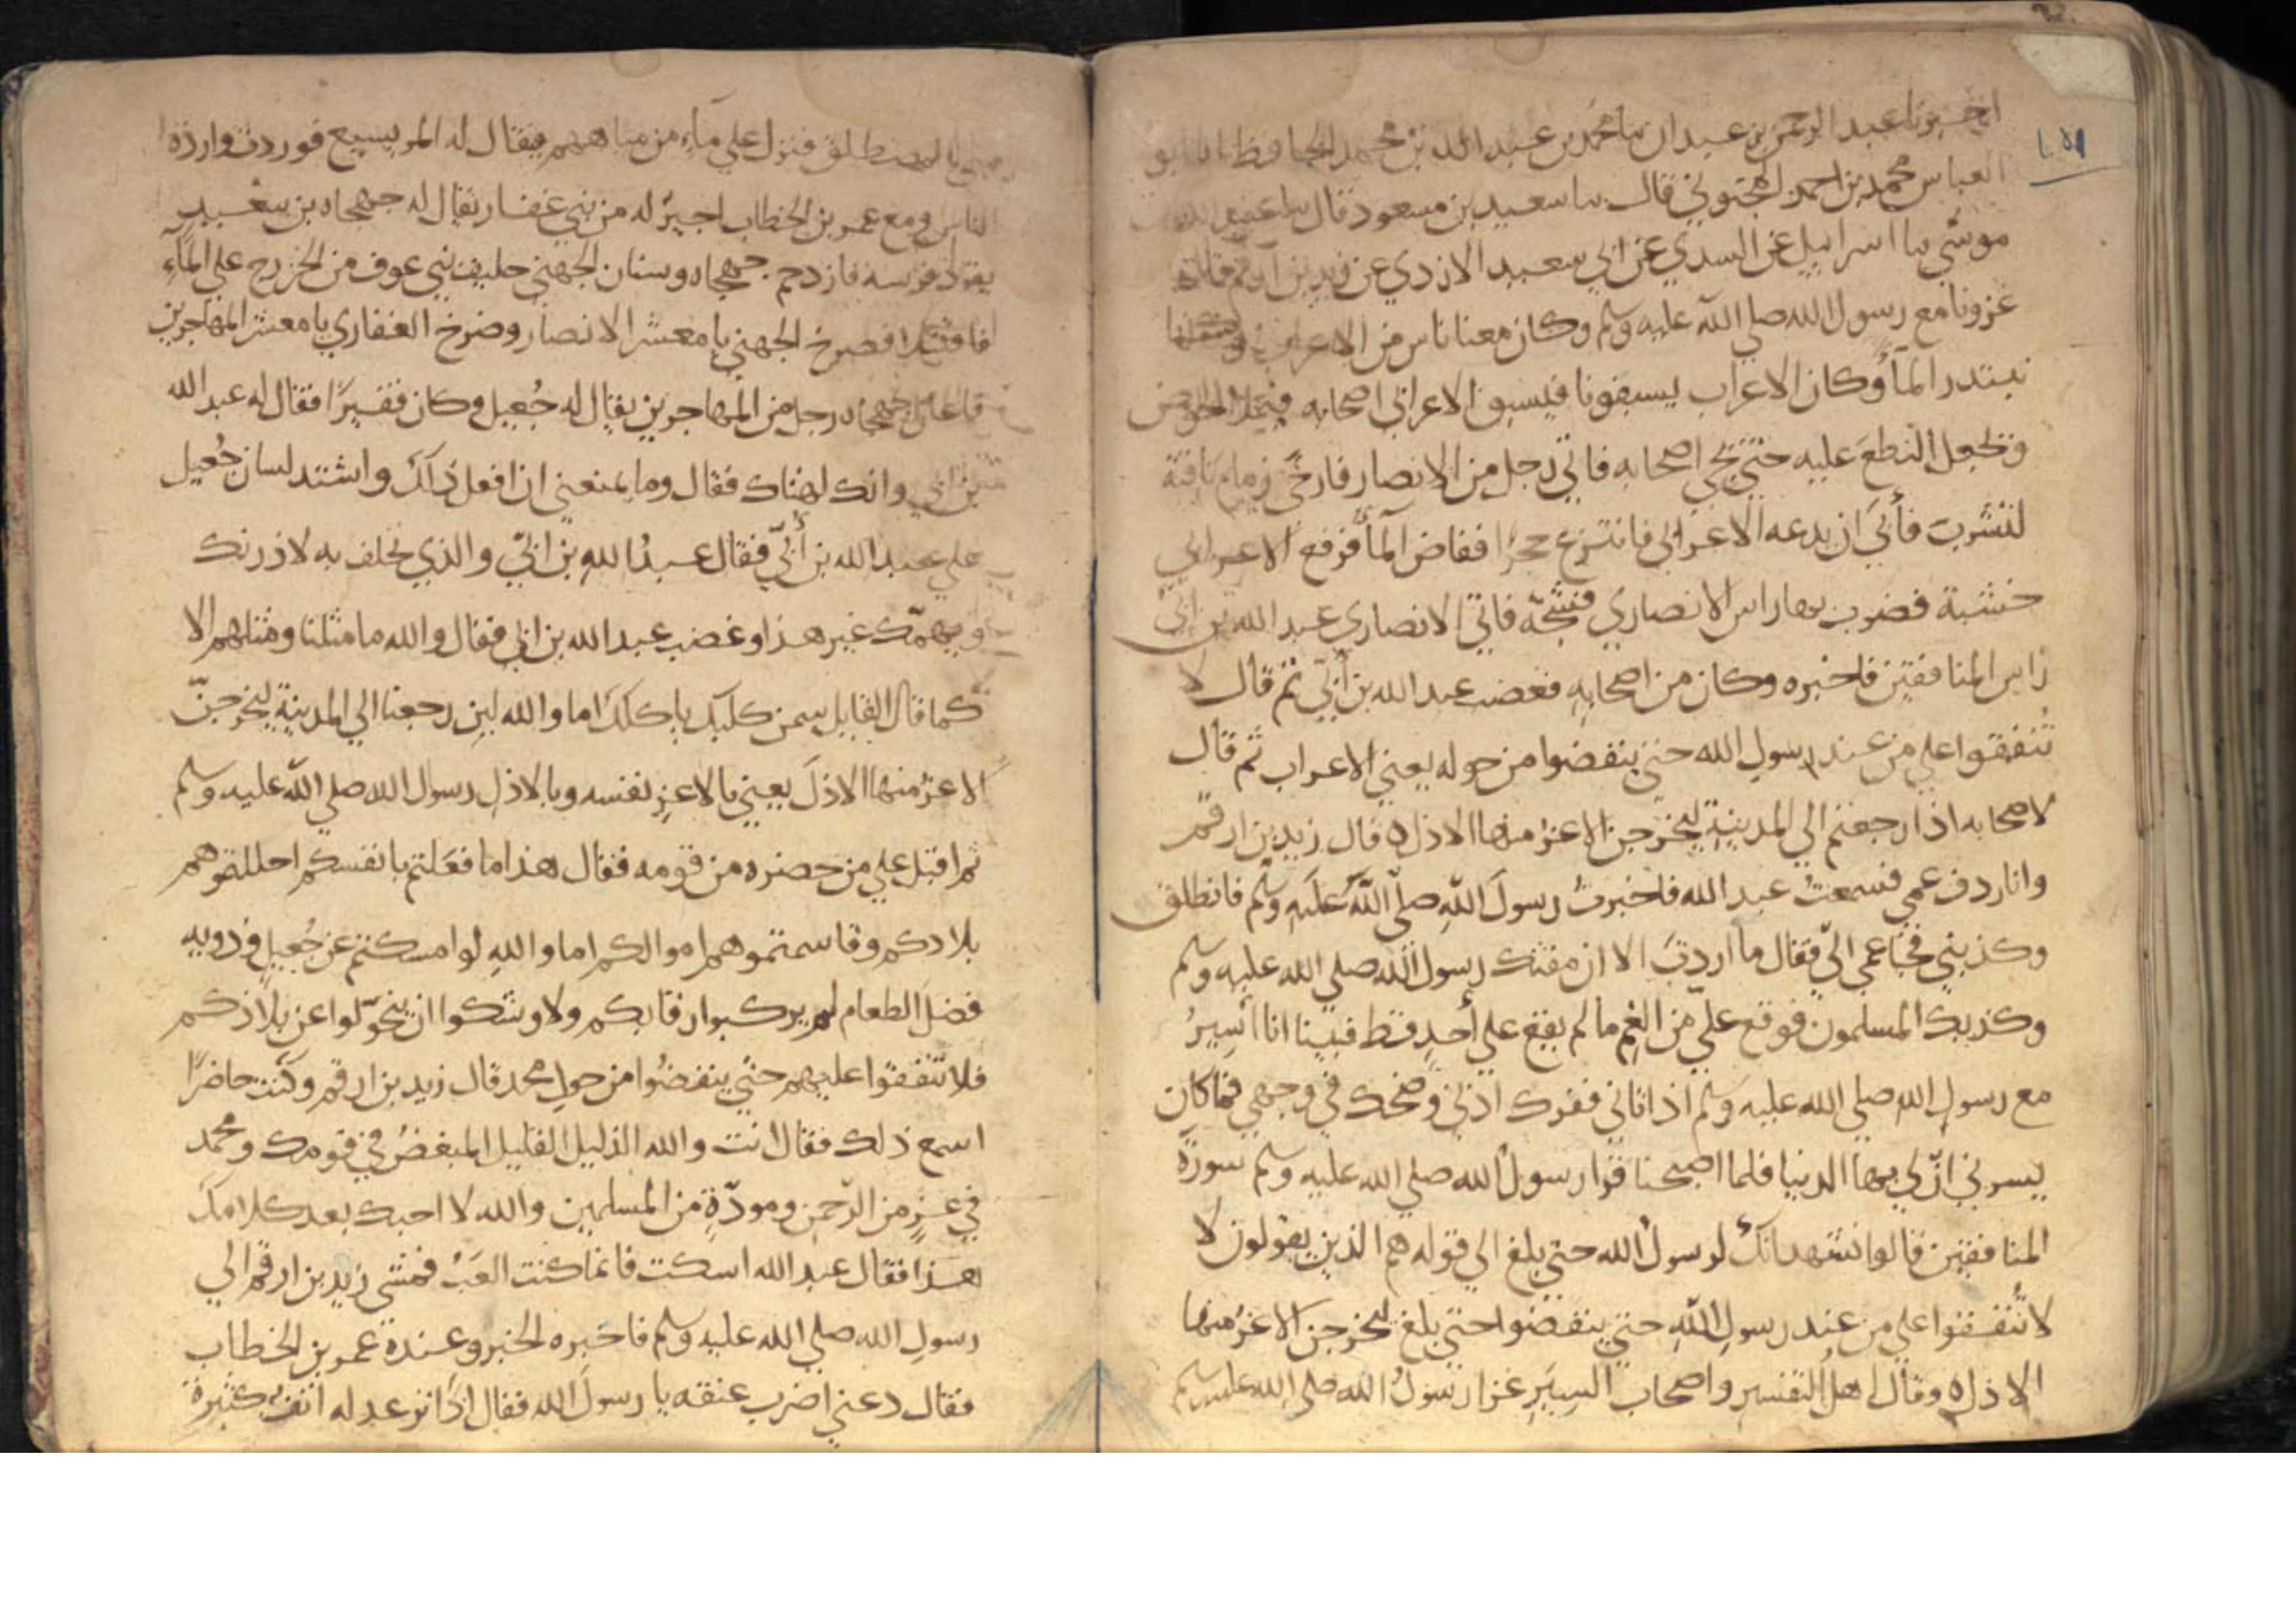 ١٥٩
اخبرنا عبد الرحمن بن عبدان نا محمد بن عبد الله بن محمد الحافظ انا ابو
العباس محمد بن احمد المحبوبي قال نا سعيد بن مسعود قال نا عبيد الله بن
موسى نا اسرائيل عن السدي عن ابي سعيد الازدي عن زيد بن ارقم قال
غزونا مع رسول الله صلي الله عليه وسلم وكان معنا ناس من الاعراب وكنا
نبتدر المآء وكان الاعراب يسبقونا فيسبق الاعرابي اصحابه فيملأ الحوض
ويجعل النطع عليه حتي يجي اصحابه فاتي رجل من الانصار فارخي زمام ناقته
لتشرب فأبي ان يدعه الاعرابي فانتزع حجرا ففاض المآء فرفع الاعرابي
خشبة فضرب بها راس الانصاري فشجّه فاتي الانصاري عبد الله بن ابيّ
راس المنافقين فاخبره وكان من اصحابه فغضب عبد الله بن أبيّ ثم قال لا
تُنفقوا علي من عند رسول الله حتي ينفضوا من حوله يعني الاعراب ثم قال
لاصحابه اذا رجعتم الي المدينة ليخرجن الاعز منها الاذل ه قال زيد بن ارقم
وانا ردف عمي فسمعت عبد الله فاخبرت رسول الله صلي الله عليه وسلم فانطلق
وكذبني فجا عمي اليّ فقال ما اردت الا ان مقتك رسول الله صلي الله عليه وسلم
وكذبك المسلمون فوقع عليّ من الغم ما لم يقع علي أحد قط فبينا انا اسير
مع رسول الله صلي الله عليه وسلم اذ اتاني ففرك اذني وضحك في وجهي فما كان
يسرني انّ لي بها الدنيا فلما اصبحنا قرا رسول الله صلي الله عليه وسلم سورة
المنافقين قالوا نشهد انك لرسول الله حتي بلغ الي قوله هم الذين يقولون لا
لا تُنفقوا علي من عند رسول الله حتي ينفضوا حتي بلغ ليخرجن الاعز منها
الاذل ه وقال اهل التفسير واصحاب السير غزا رسول الله صلي الله عليه وسلم
بني المصطلق فنزل علي مآء من مياههم يقال له المريسيع فوردت واردة
الناس ومع عمر بن الخطاب اجير له من بني غفار يقال له جهجاه بن سعيد
يقود فرسه فازدحم جهجاه وسنان الجهني حليف بني عوف من الخزرج علي المآء
فاقتتلا فصرخ الجهني يا معشر الانصار وصرخ الغفاري يا معشر المهاجرين
فاعان جهجاه رجل من المهاجرين يقال له جُعيل وكان فقيرا فقال له عبد الله
بن ابي وانك لهناك فقال وما يمنعني ان افعل ذلك واشتد لسان جُعيل
علي عبد الله بن أُبيّ فقال عبد الله بن ابيّ والذي يحلف به لاذرنك
ويهمّك غير هذا وغضب عبد الله بن ابي فقال والله ما مثلنا ومثلهم الا
كما قال القايل سمن كلبك ياكلك اما والله لين رجعنا الي المدينة ليخرجنّ
الاعز منها الاذل يعني بالاعز نفسه وبالاذل رسول الله صلي الله عليه وسلم
ثم اقبل علي من حضره من قومه فقال هذا ما فعلتم بانفسكم احللتموهم
بلادكم وقاسمتموهم اموالكم اما والله لو امسكتم عن جُعيل وذويه
فضل الطعام لم يركبوا رقابكم ولاوشكوا ان يتحوّلوا عن بلادكم
فلا تنفقوا عليهم حتي ينفضوا من حول محمد قال زيد بن ارقم وكنت حاضرًا
اسمع ذلك فقال انت والله الذليل القليل المبغض في قومك ومحمد
في عز من الرحمن ومودّة من المسلمين والله لا احبك بعد كلامك
هذا فقال عبد الله اسكت فانما كنت العب فمشي زيد بن ارقم الي
رسول الله صلي الله عليه وسلم فاخبره الخبر وعنده عمر بن الخطاب
فقال دعني اضرب عنقه يا رسول الله فقال اذا ترعد له انف كثيرة